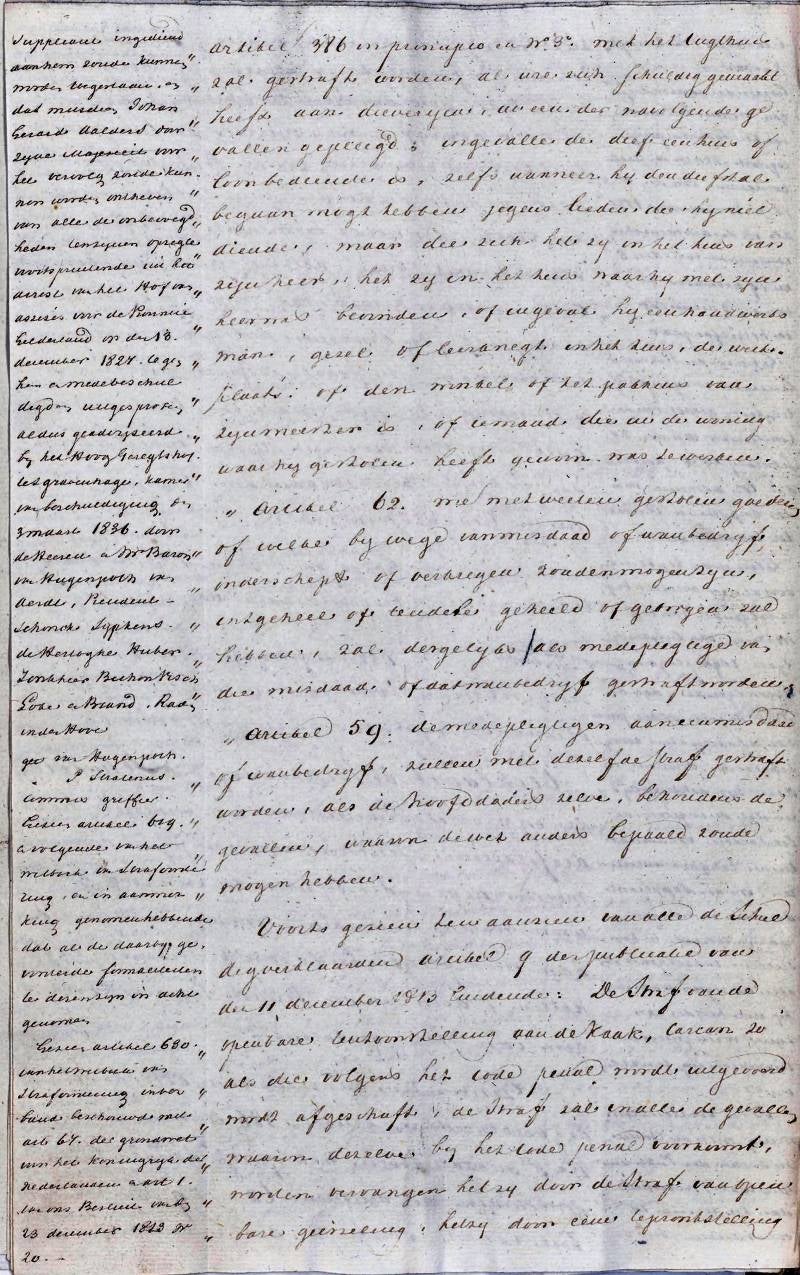 Suppliant ingediend
aan hem zoude kunnen
worden toegestaan, en
dat mitsdien Johan
Gerard Aalders door
Zijne Majesteit voor
het vervolg zoude kun-
nen worden ontheven
van alle de onbevoegd
heden tenzynen opzigte
voortspruitende uit het
arrest van het Hof van
assises voor de Provincie
Gelderland op den 13
december 1827 tegen
hem en medebeschul
digden uitgesproken,
aldus geadviseerd
by het Hoog Geregtshof
te 'sgravenhage, kamer
van beschuldiging den
3 maart 1836. door
de Heeren en Mrs Baron
van Hugenpoth van
Aerdt, President
Schonck Syphens.
de Hertoghe Huber.
Jonkheer Beelaerts
en Brand. Raad
in den Hove
get. van Hugenpoth.
P. Stratenus.
commis griffier.
Gezien artikel 619.
en volgende van het
wetboek van Strafvorde
ring, en in aanmer
king genomen hebbende
dat al de daarby ge-
vorderde formaliteiten
te dezen zyn in acht
genomen
Gezien artikel 630.
van het wetboek van
Strafvordering in ver
band beschouwd met
art. 67. der grondwet
van het Koningryk der
Nederlanden en art 1.
van ons Besluit van den
23 december 1823 No
20. —
artikel 386 in principio en No. 3o. met het tugthuis
zal gestraft worden, al wie zich schuldig gemaakt
heeft aan dieverijen, in een der navolgende ge
vallen gepleegd; ingevalle de dief een huis of
loonbediende is, zelfs wanneer hy den diefstal
begaan mogt hebben jegens lieden die hy niet
diende, maar die zich het zy in het huis van
zyn heer, het zy in het huis waar hy met zyn
heer was bevonden, of ingeval hy een handwerks
man, gezel of leerknegt in het huis, de werk-
plaats of den winkel of het pakhuis van
zyn meester is, of iemand die in de woning
waar hy gestolen heeft gewoon was te werken.
„ Artikel 62. wie met weeten gestolen goederen
of welke by wege van misdaad of wanbedryf,
onderschept of verkregen zouden mogen zyn,
in 't geheel of ten deele geheeld of geborgen zal
hebben, zal dergelyks als medepligtige van
die misdaad of dat wanbedryf gestraft worden,
„ Artikel 59. de medepligtigen aan een misdaad
of wanbedryf, zullen met dezelfde straf gestraft
worden, als de hoofddaders zelve, behoudens de
gevallen, waarin de wet anders bepaald zoude
mogen hebben.
Voorts gezien ten aanzien van alle de Schul
digverklaarden artikel 9 der publicatie van
den 11 december 1813 luidende: De Straf van de
openbare tentoonstelling aan de Kaak, Carcan zo
als die volgens het Code penal wordt uitgevoerd
wordt afgeschaft; de Straf zal in alle de gevallen
waarin dezelve by het Code penal voorkomt,
worden vervangen het zy door de Straf van open
bare geesseling, het zy door eene tepronkstelling